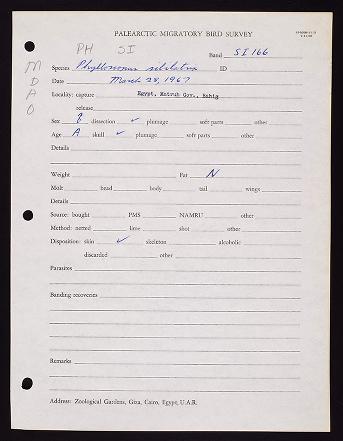 PALEARCTIC MIGRATORY BIRD SURVEY
PH SI
Band SI 166
M
D
A
O
Species Phylloscopus sibilatrix ID
Date March 28, 1967
Locality: capture Egypt, Matruh Gov., Bahig
release
Sex dissection ✓ plumage soft parts other
Age A skull ✓ plumage soft parts other
Details
Weight Fat N
Molt head body tail wings
Details
Source: bought PMS NAMRU other
Method: netted lime shot other
Disposition: skin ✓ skeleton alcoholic
discarded other
Parasites
Banding recoveries
Remarks
Address: Zoological Gardens, Giza, Cairo, Egypt, U.A.R.